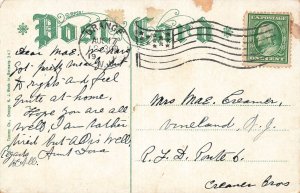 Post Card
Dear Mae, We are
Got pretty nearly put
to rights and feel
quite at home.
Hope you are all
well, I am rather
tired but all is well,
Aunt Dora
Mrs Mae Creamer,
Vineland N. J.
R. F. D. Route 6.
Creamer Bros
ONE CENT